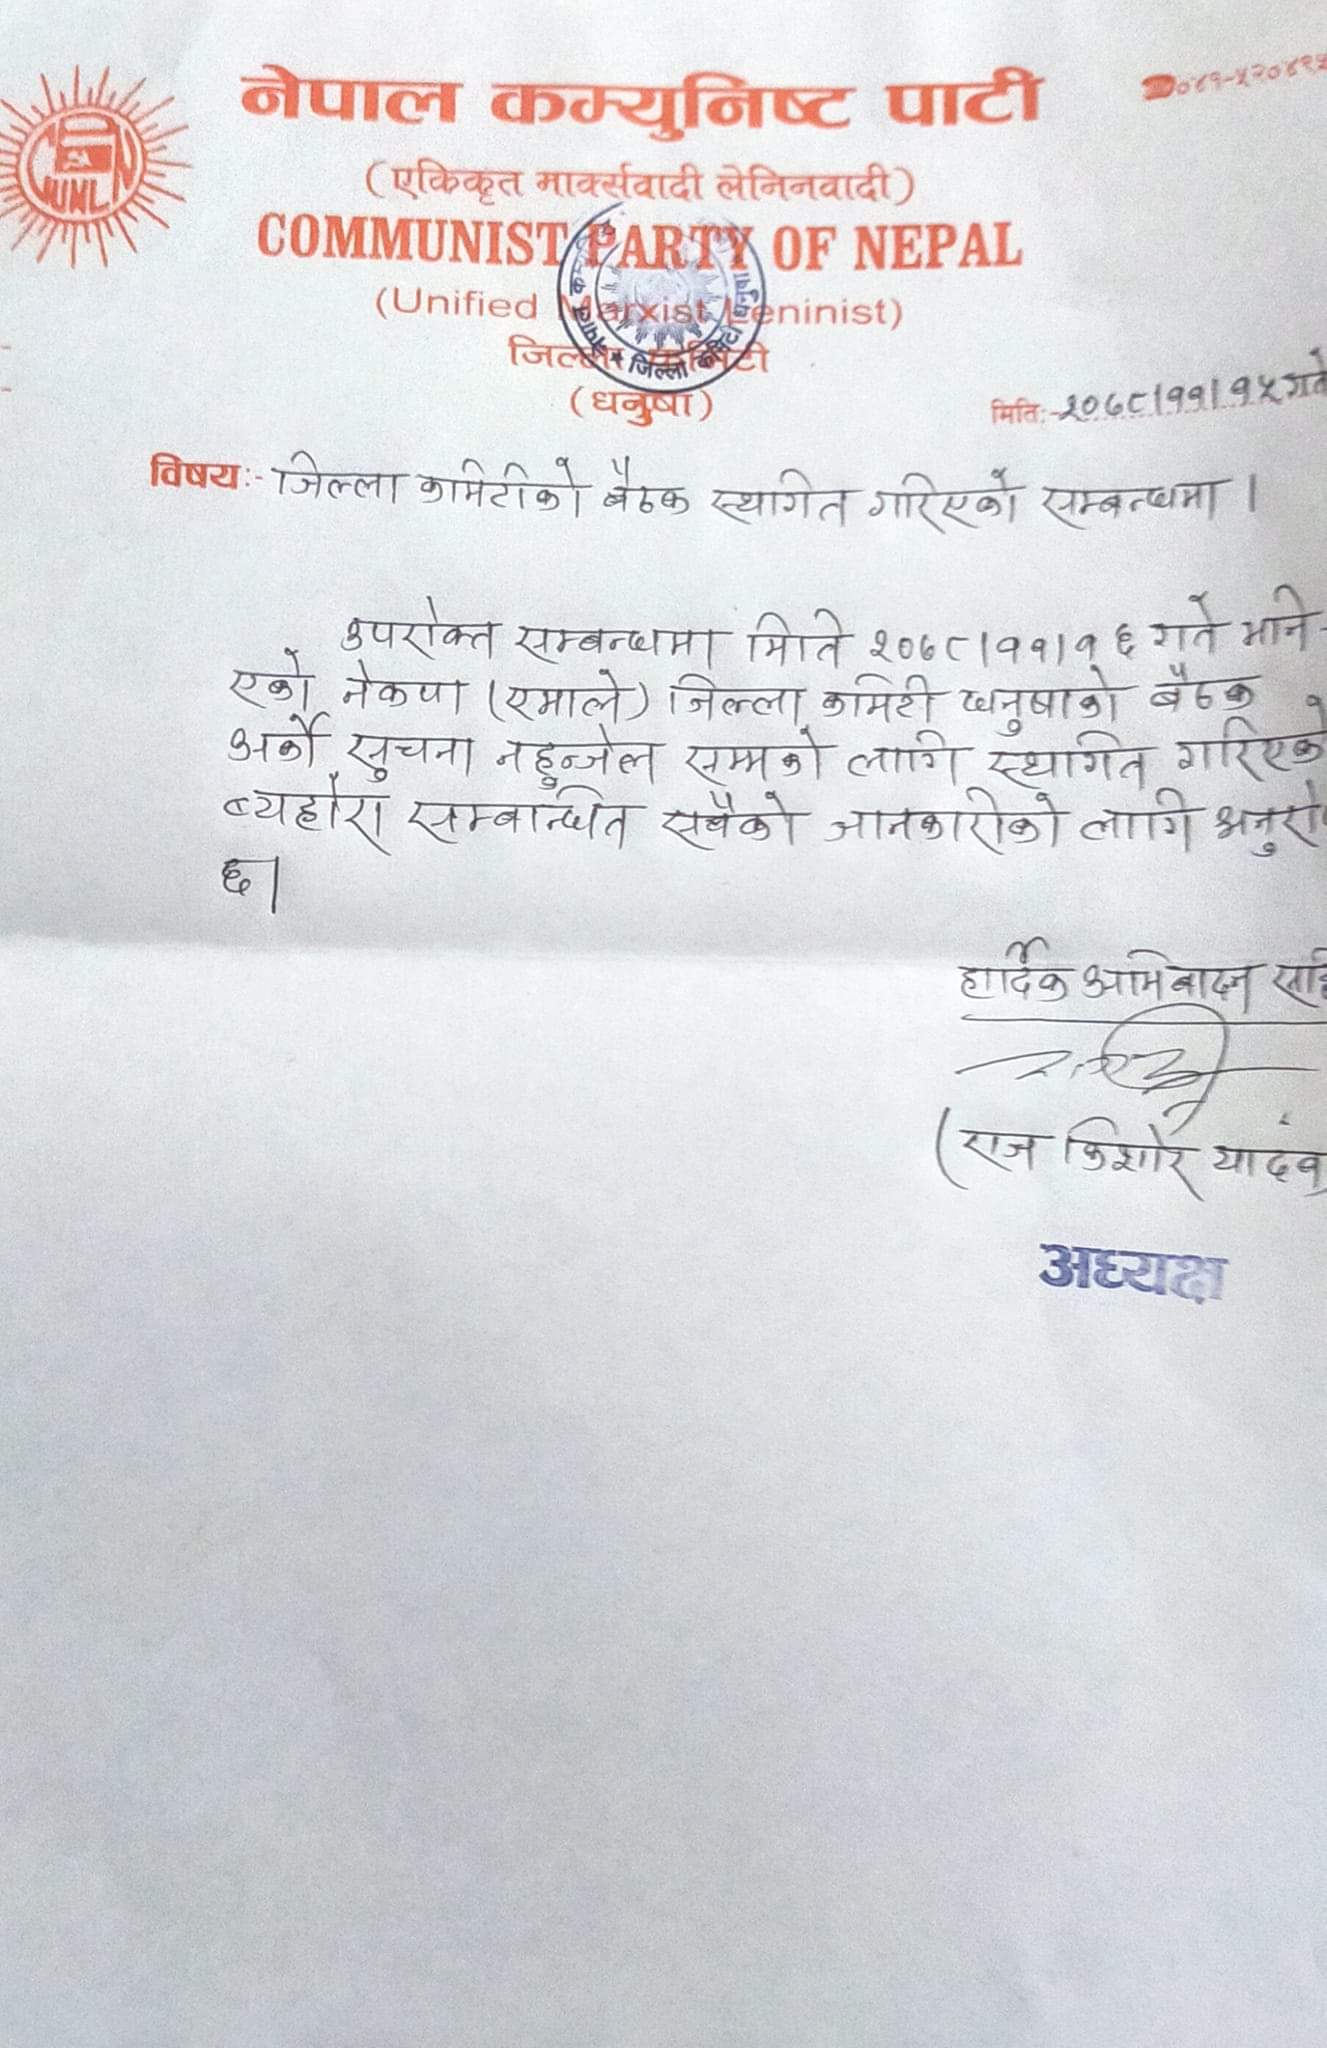 नेपाल कम्युनिष्ट पार्टी
०४१-५२०४१५
(एकिकृत मार्क्सवादी लेनिनवादी)
UML
COMMUNIST PARTY OF NEPAL
(Unified Marxist Leninist)
जिल्ला कमिटी
(धनुषा)
मितिः-२०७८।११।१५ गते
विषयः- जिल्ला कमिटीको बैठक स्थगित गरिएको सम्बन्धमा ।
उपरोक्त सम्बन्धमा मिति २०७८।११।१६ गते भनि-
एको नेकपा (एमाले) जिल्ला कमिटी धनुषाको बैठक
अर्को सुचना नहुन्जेल सम्मको लागि स्थगित गरिएको
ब्यहोरा सम्बन्धित सबैको जानकारीको लागि अनुरो
छ।
हार्दिक अभिबादन
(राज किशोर यादव)
अध्यक्ष